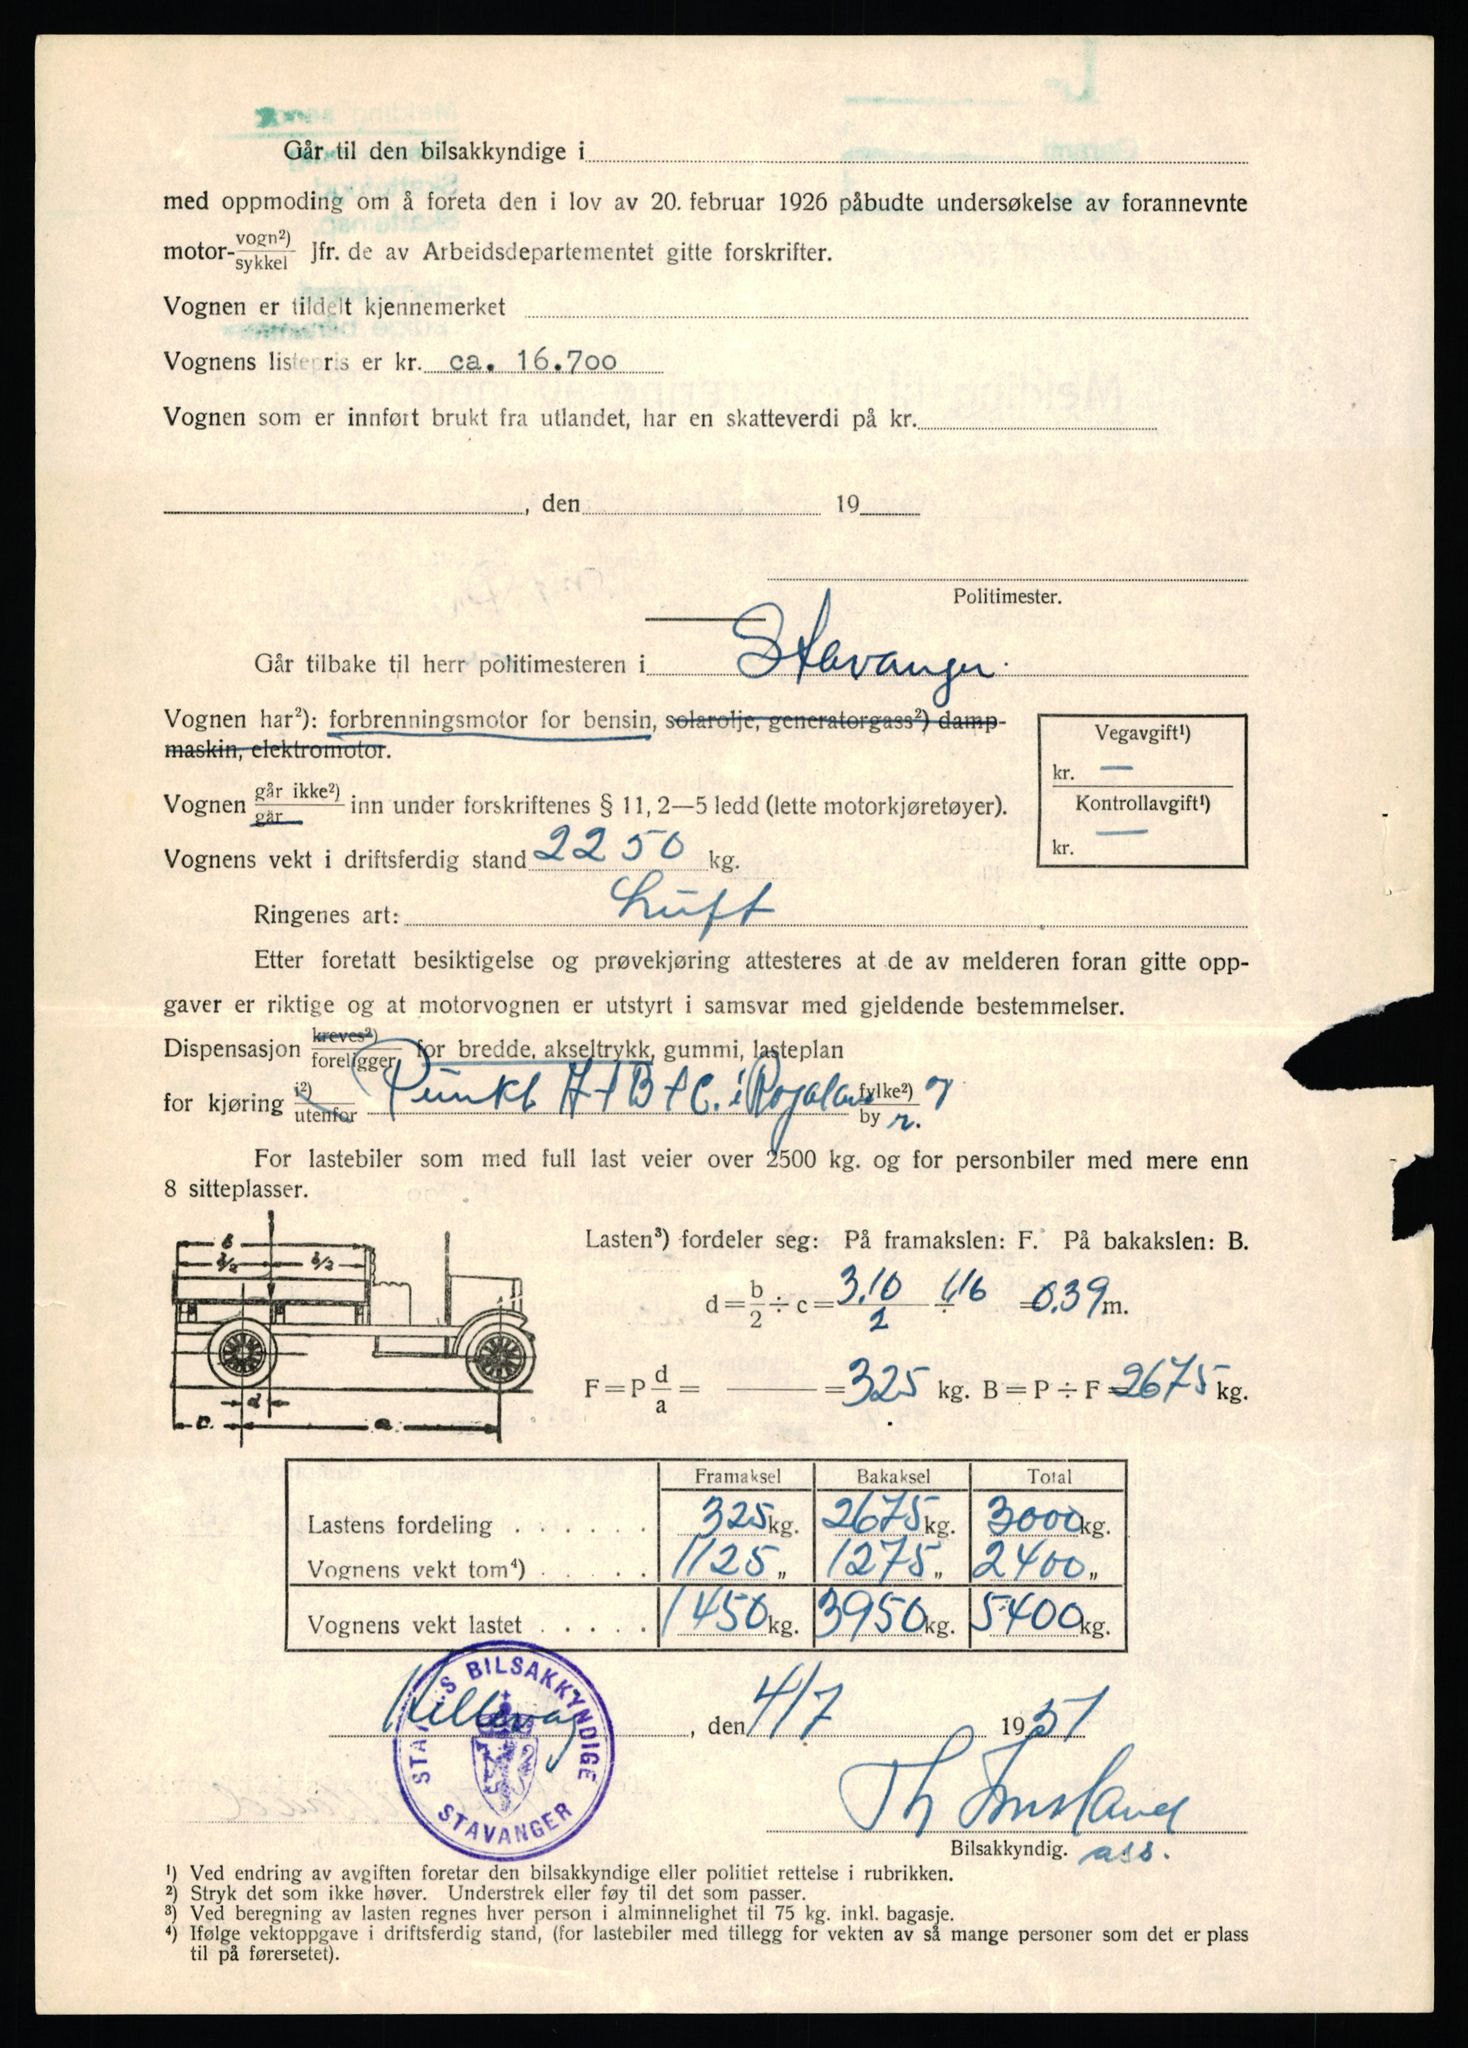 Går til den bilsakkyndige i
med oppmoding om å foreta den i lov av 20. februar 1926 påbudte undersøkelse av forannevnte
motor- vogn²) / sykkel Jfr. de av Arbeidsdepartementet gitte forskrifter.
Vognen er tildelt kjennemerket
Vognens listepris er kr. ca. 16.700
Vognen som er innført brukt fra utlandet, har en skatteverdi på kr.
, den 19
Politimester.
Går tilbake til herr politimesteren i Stavanger.
Vognen har²): forbrenningsmotor for bensin, solarolje, generatorgass²) damp-
maskin, elektromotor.
Vegavgift¹)
kr. —
Kontrollavgift¹)
kr. —
Vognen går ikke²) / går inn under forskriftenes § 11, 2—5 ledd (lette motorkjøretøyer).
Vognens vekt i driftsferdig stand 2250 kg.
Ringenes art: Luft
Etter foretatt besiktigelse og prøvekjøring attesteres at de av melderen foran gitte opp-
gaver er riktige og at motorvognen er utstyrt i samsvar med gjeldende bestemmelser.
Dispensasjon kreves²) / foreligger for bredde, akseltrykk, gummi, lasteplan
for kjøring i²) / utenfor Punkt A + B + C. i Rogaland fylke²) / by
For lastebiler som med full last veier over 2500 kg. og for personbiler med mere enn
8 sitteplasser.
Lasten³) fordeler seg: På framakslen: F. På bakakslen: B.
d = b/2 ÷ c = 3,10/2 ÷ 1,16 = 0.39 m.
F = P d/a = —— = 325 kg. B = P ÷ F = 2675 kg.
b
b/2 b/2
d
c. a
Framaksel Bakaksel Total
Lastens fordeling . . . . . . 325 kg. 2675 kg. 3000 kg.
Vognens vekt tom⁴) . . . . . 1125 „ 1275 „ 2400 „
Vognens vekt lastet . . . . . 1450 kg. 3950 kg. 5400 kg.
STATENS BILSAKKYNDIGE
STAVANGER
Hillevåg, den 4/7 1951
Bilsakkyndig. ass.
¹) Ved endring av avgiften foretar den bilsakkyndige eller politiet rettelse i rubrikken.
²) Stryk det som ikke høver. Understrek eller føy til det som passer.
³) Ved beregning av lasten regnes hver person i alminnelighet til 75 kg. inkl. bagasje.
⁴) Ifølge vektoppgave i driftsferdig stand, (for lastebiler med tillegg for vekten av så mange personer som det er plass
til på førersetet).